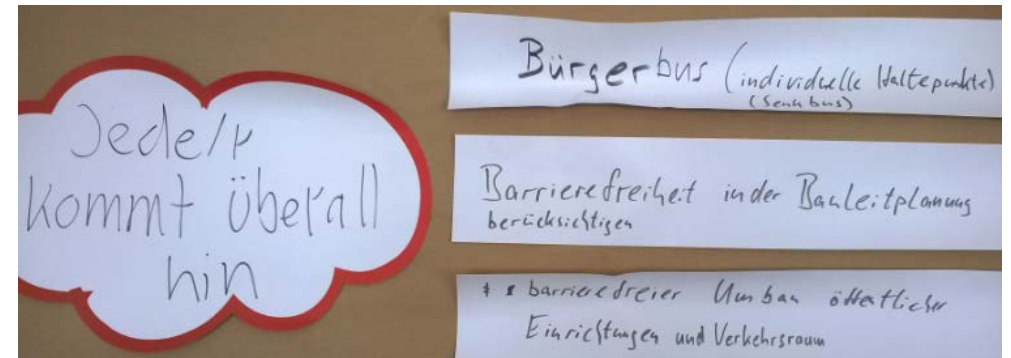 Jede/r
kommt überall
hin
Bürgerbus (individuelle Haltepunkte)
Barrierefreiheit in der Bauleitplanung
berücksichtigen
barrierefreier Umbau öffentlicher
Einrichtungen und Verkehrsraum